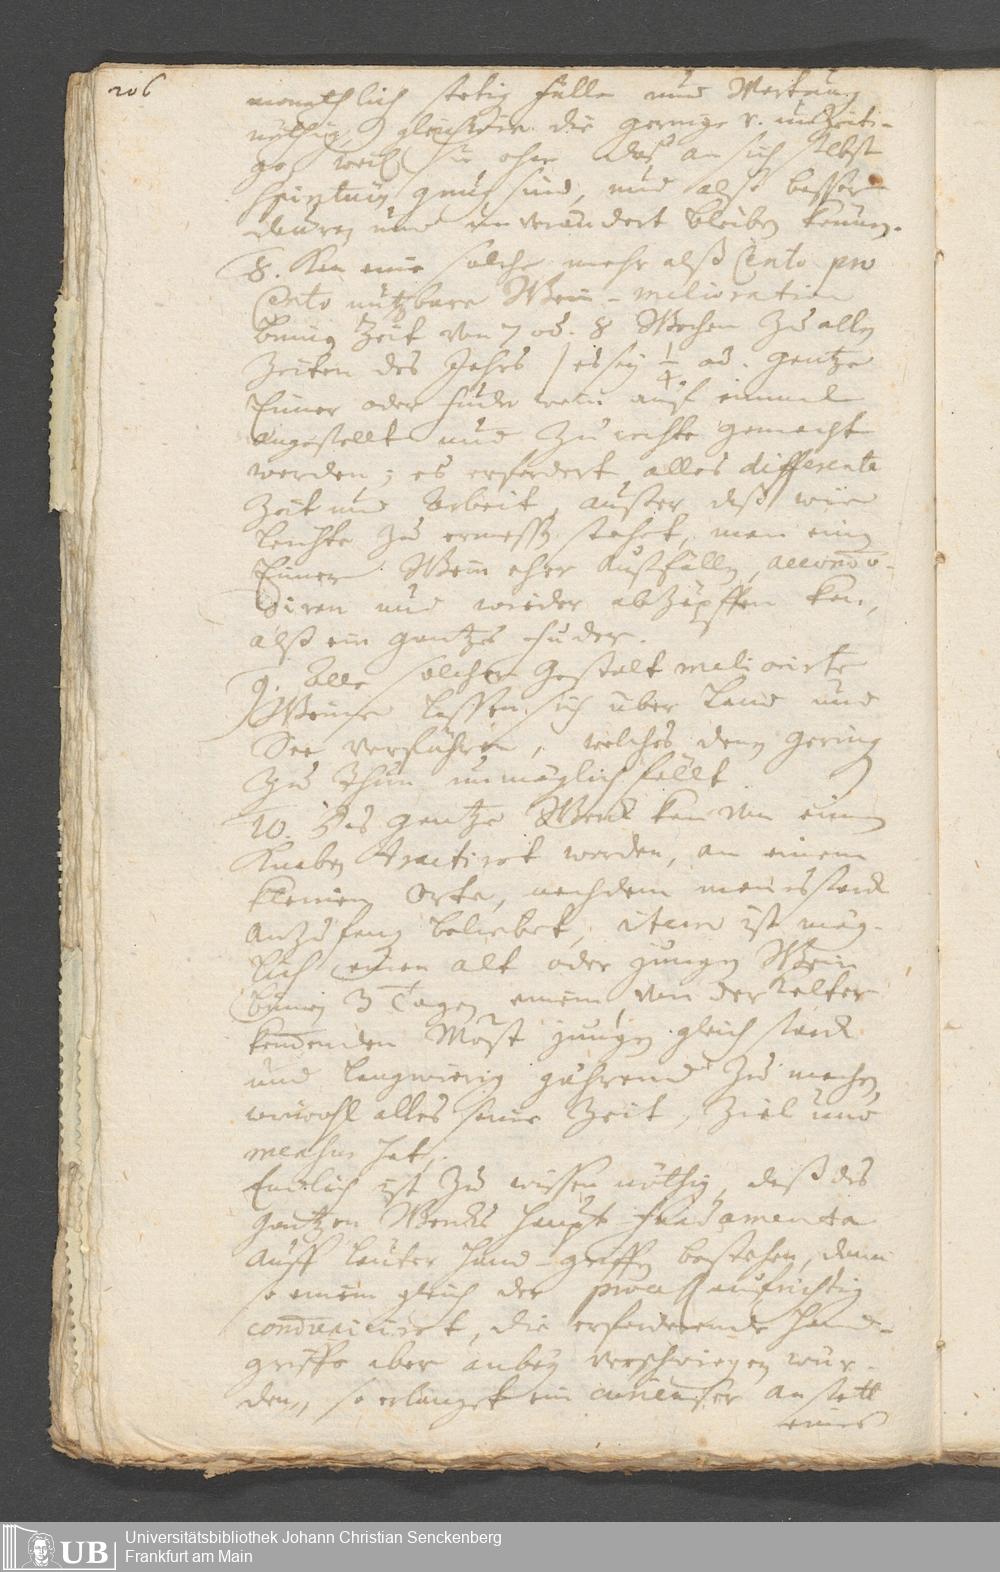 206
monathlich stetig fülle und Wartung
nöthig, gleichwie die geringe v. unzeiti-
ge, weil sie ohne das an sich selbst
spirituös genug sind, und also besser
dauren und unverändert bleiben können.
8. Kan eine solche mehr alß Cento pro
Cento nutzbare Wein-melioration
binnen Zeit von 7 od. 8 Wochen zu allen
Zeiten des Jahrs / es sey 1/4 od. gantze
Eimer oder fuder wein auf einmal
angestellt und zu rechte gemacht
werden; es erfordert alles differente
Zeit und Arbeit, ausser daß wie
leichte zu ermessen stehet, man einen
Eimer Wein eher außfüllen, accomo-
diren und wieder abzapffen kan,
alß ein gantzes fuder.
9. Alle solcher gestalt meliorirte
Weine lassen sich über Land und
See verführen, welches denen gering
zu thun unmöglich fällt
10. Das gantze Werck kan von einem
Knaben tractiret werden, an einem
kleinen Orte, nachdem man es starck
anzufang beliebet, item ist mög-
lich einen alt oder jungen Wein
binnen 3 Tagen einem von der Kelter
kommenden Most jungen gleich starck
und langwierig gährend zu machen,
wiewohl alles seine Zeit, Ziel und
maaße hat.
Endlich ist zu wissen nöthig, daß des
gantzen Wercks haupt fundamenta
auff lauter Hand-griffen bestehen, denn
so einem gleich der process aufrichtig
communiciret, die erfordernde Hand-
griffe aber anbey verschwiegen wür-
den, so erlanget ein curieuser anstatt
eines
Universitätsbibliothek Johann Christian Senckenberg
Frankfurt am Main
UB